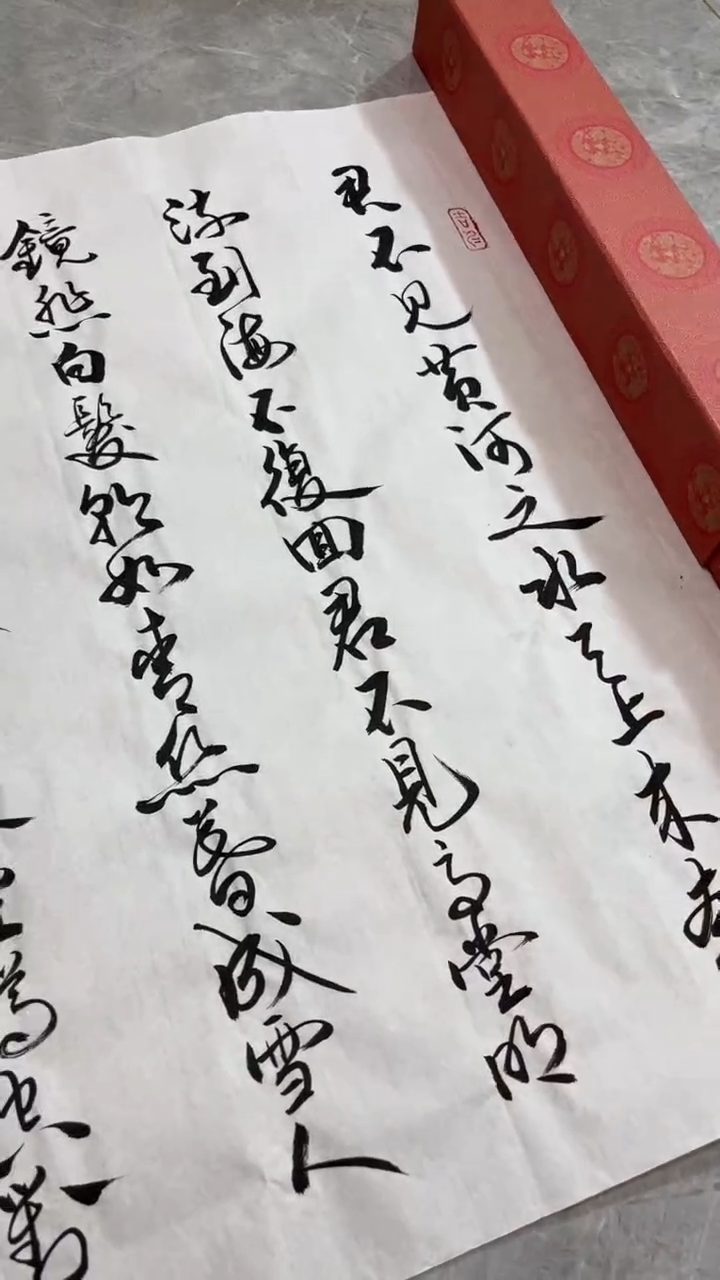 君不见黄河之水天上来
流到海不復回君不見高堂明
鏡悲白髮朝如青丝暮成雪人
對